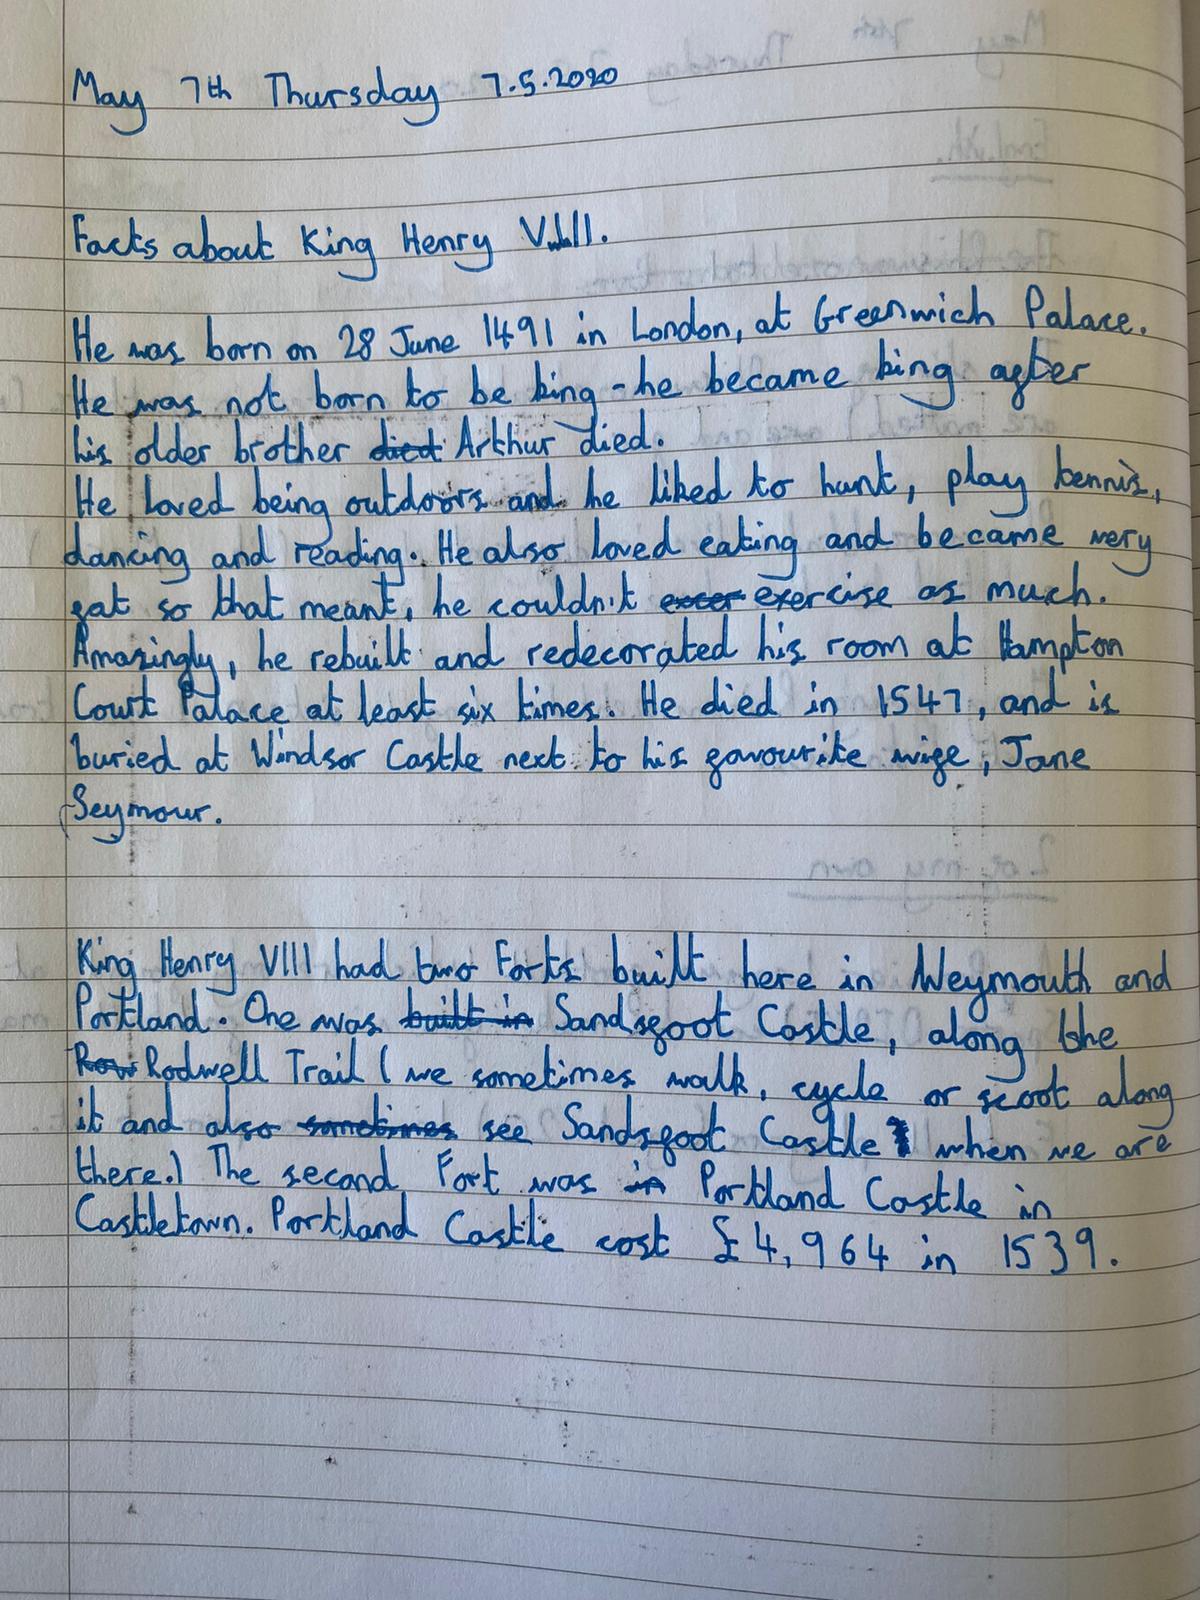 May 7th Thursday 7.5.2020
Facts about King Henry VIII.
He was born on 28 June 1491 in London, at Greenwich Palace.
He was not born to be king - he became king after
his older brother died Arthur died.
He loved being outdoors and he liked to hunt, play tennis,
dancing and reading. He also loved eating and became very
fat so that meant, he couldn't excer exercise as much.
Amazingly, he rebuilt and redecorated his room at Hampton
Court Palace at least six times. He died in 1547, and is
buried at Windsor Castle next to his favourite wife, Jane
Seymour.
King Henry VIII had two Forts built here in Weymouth and
Portland. One was built in Sandsfoot Castle, along the
Row Rodwell Trail (we sometimes walk, cycle or scoot along
it and also sometimes see Sandsfoot Castle when we are
there.) The second Fort was in Portland Castle in
Castletown. Portland Castle cost £4,964 in 1539.